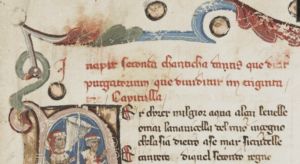 Incipit seconda chanticha dantis que dicit
purgatorium que dividitur in triginta
Capitulla
Per chorer miglior aqua alça le velle
omai la navicella del mio ingegno
che lassa dietro a se mar si crudelle
cantero di quel secondo regno